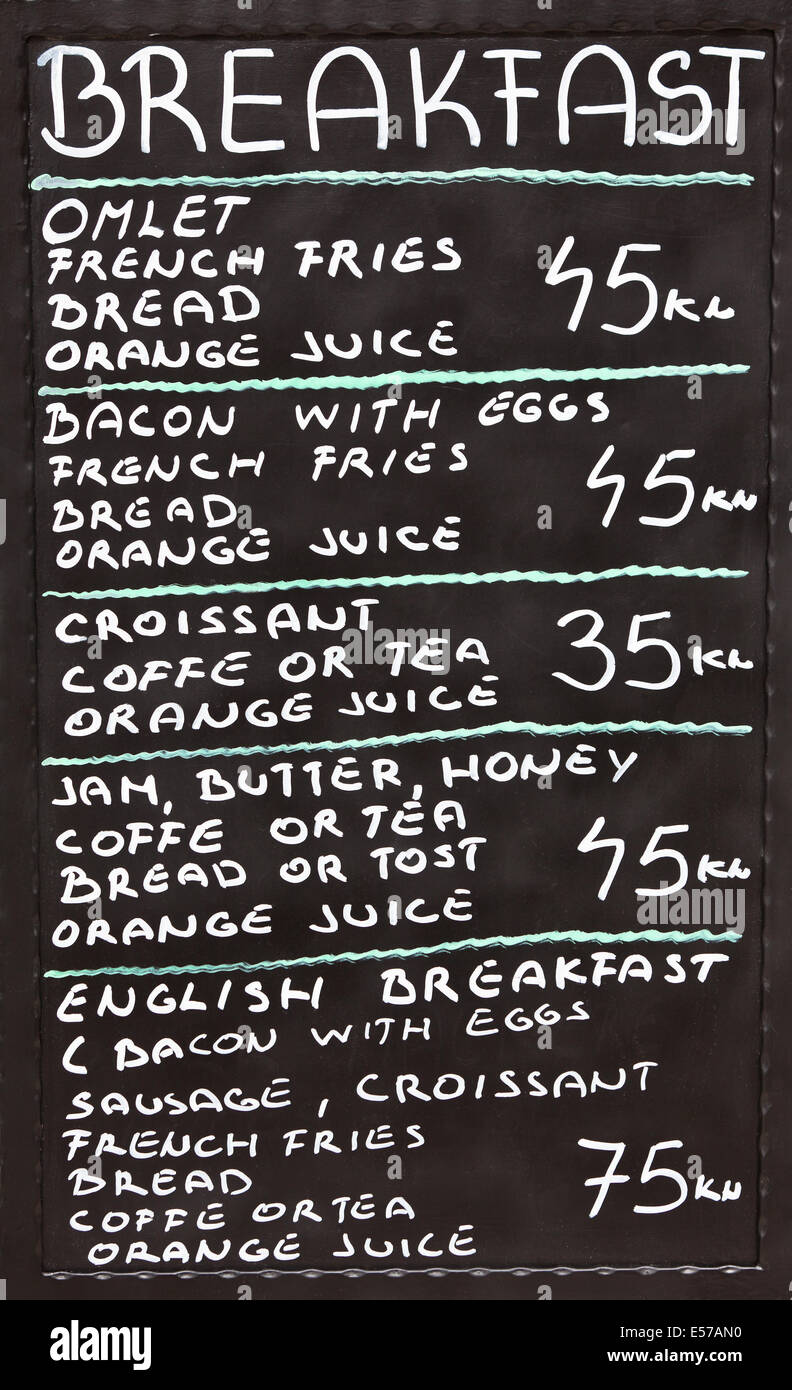 BREAKFAST
OMLET
FRENCH FRIES
BREAD
ORANGE JUICE
45 KN
BACON WITH EGGS
FRENCH FRIES
BREAD
ORANGE JUICE
45 KN
CROISSANT
COFFE OR TEA
ORANGE JUICE
35 KN
JAM, BUTTER, HONEY
COFFE OR TEA
BREAD OR TOST
ORANGE JUICE
45 KN
ENGLISH BREAKFAST
( BACON WITH EGGS
SAUSAGE, CROISSANT
FRENCH FRIES
BREAD
COFFE OR TEA
ORANGE JUICE
75 KN
alamy stock photo
E57AN0
www.alamy.com